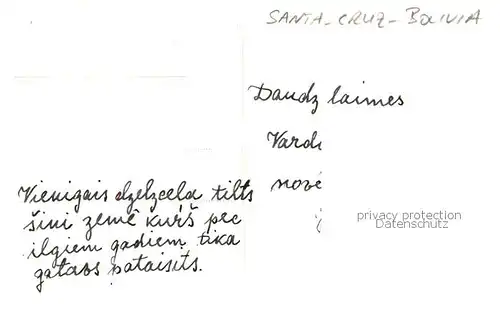 SANTA-CRUZ-BOLIVIA
Daudz laimes
Varda
novē
Vienigais dzelzcela tilts
šini zemē kuŗš pec
ilgiem gadiem tika
gatavs pataisits.
privacy protection
Datenschutz